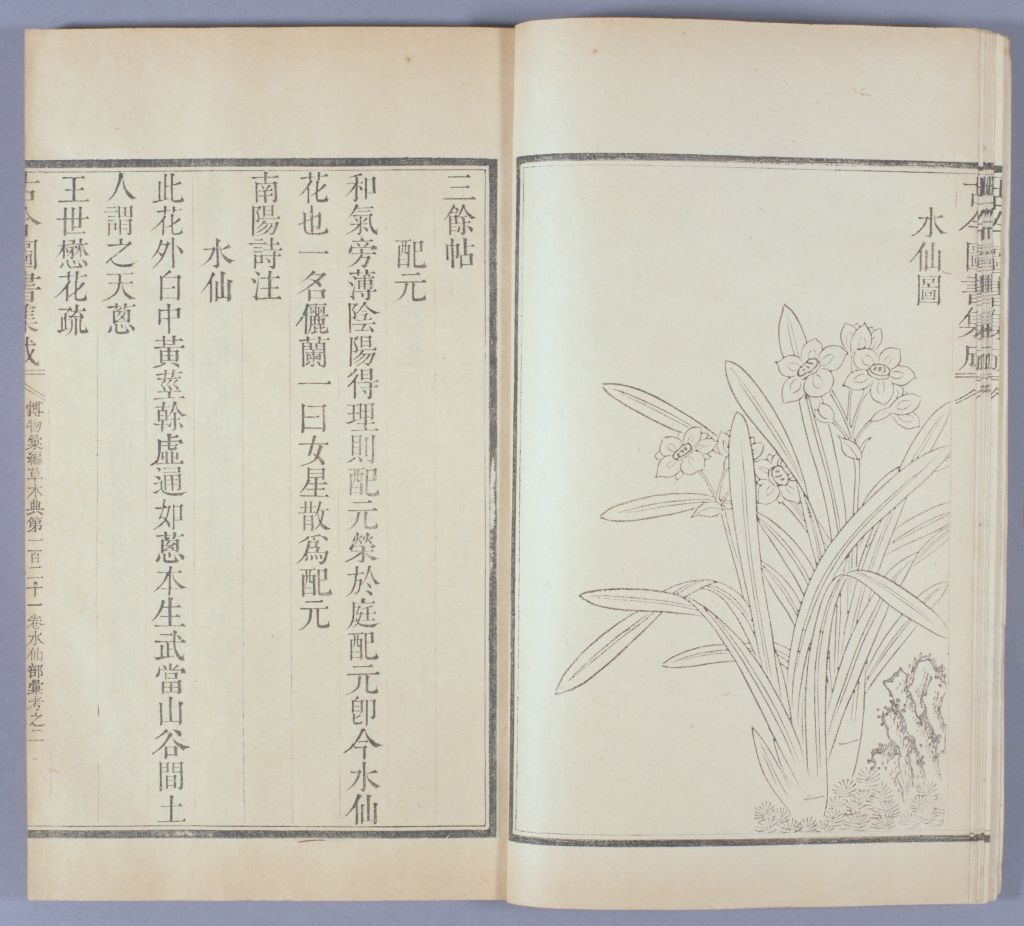 水仙圖
三餘帖
配元
和氣旁薄陰陽得理則配元榮於庭配元卽今水仙
花也一名儷蘭一曰女星散爲配元
南陽詩注
水仙
此花外白中黃莖幹虛通如蔥本生武當山谷間土
人謂之天蔥
王世懋花疏
古今圖書集成
博物彙編草木典第一百二十一卷水仙部彙考之二